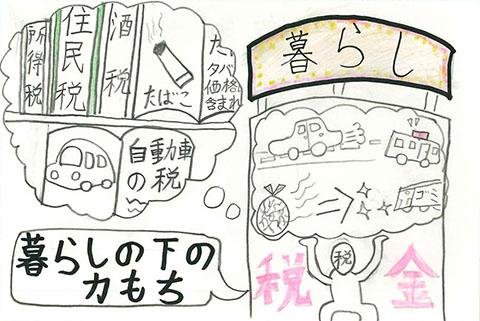 所得税
住民税
酒税
たばこ
た
タバ
価格
含まれ
自動車
の税
暮らし
ゴミ
税
税金
暮らしの下の
力もち